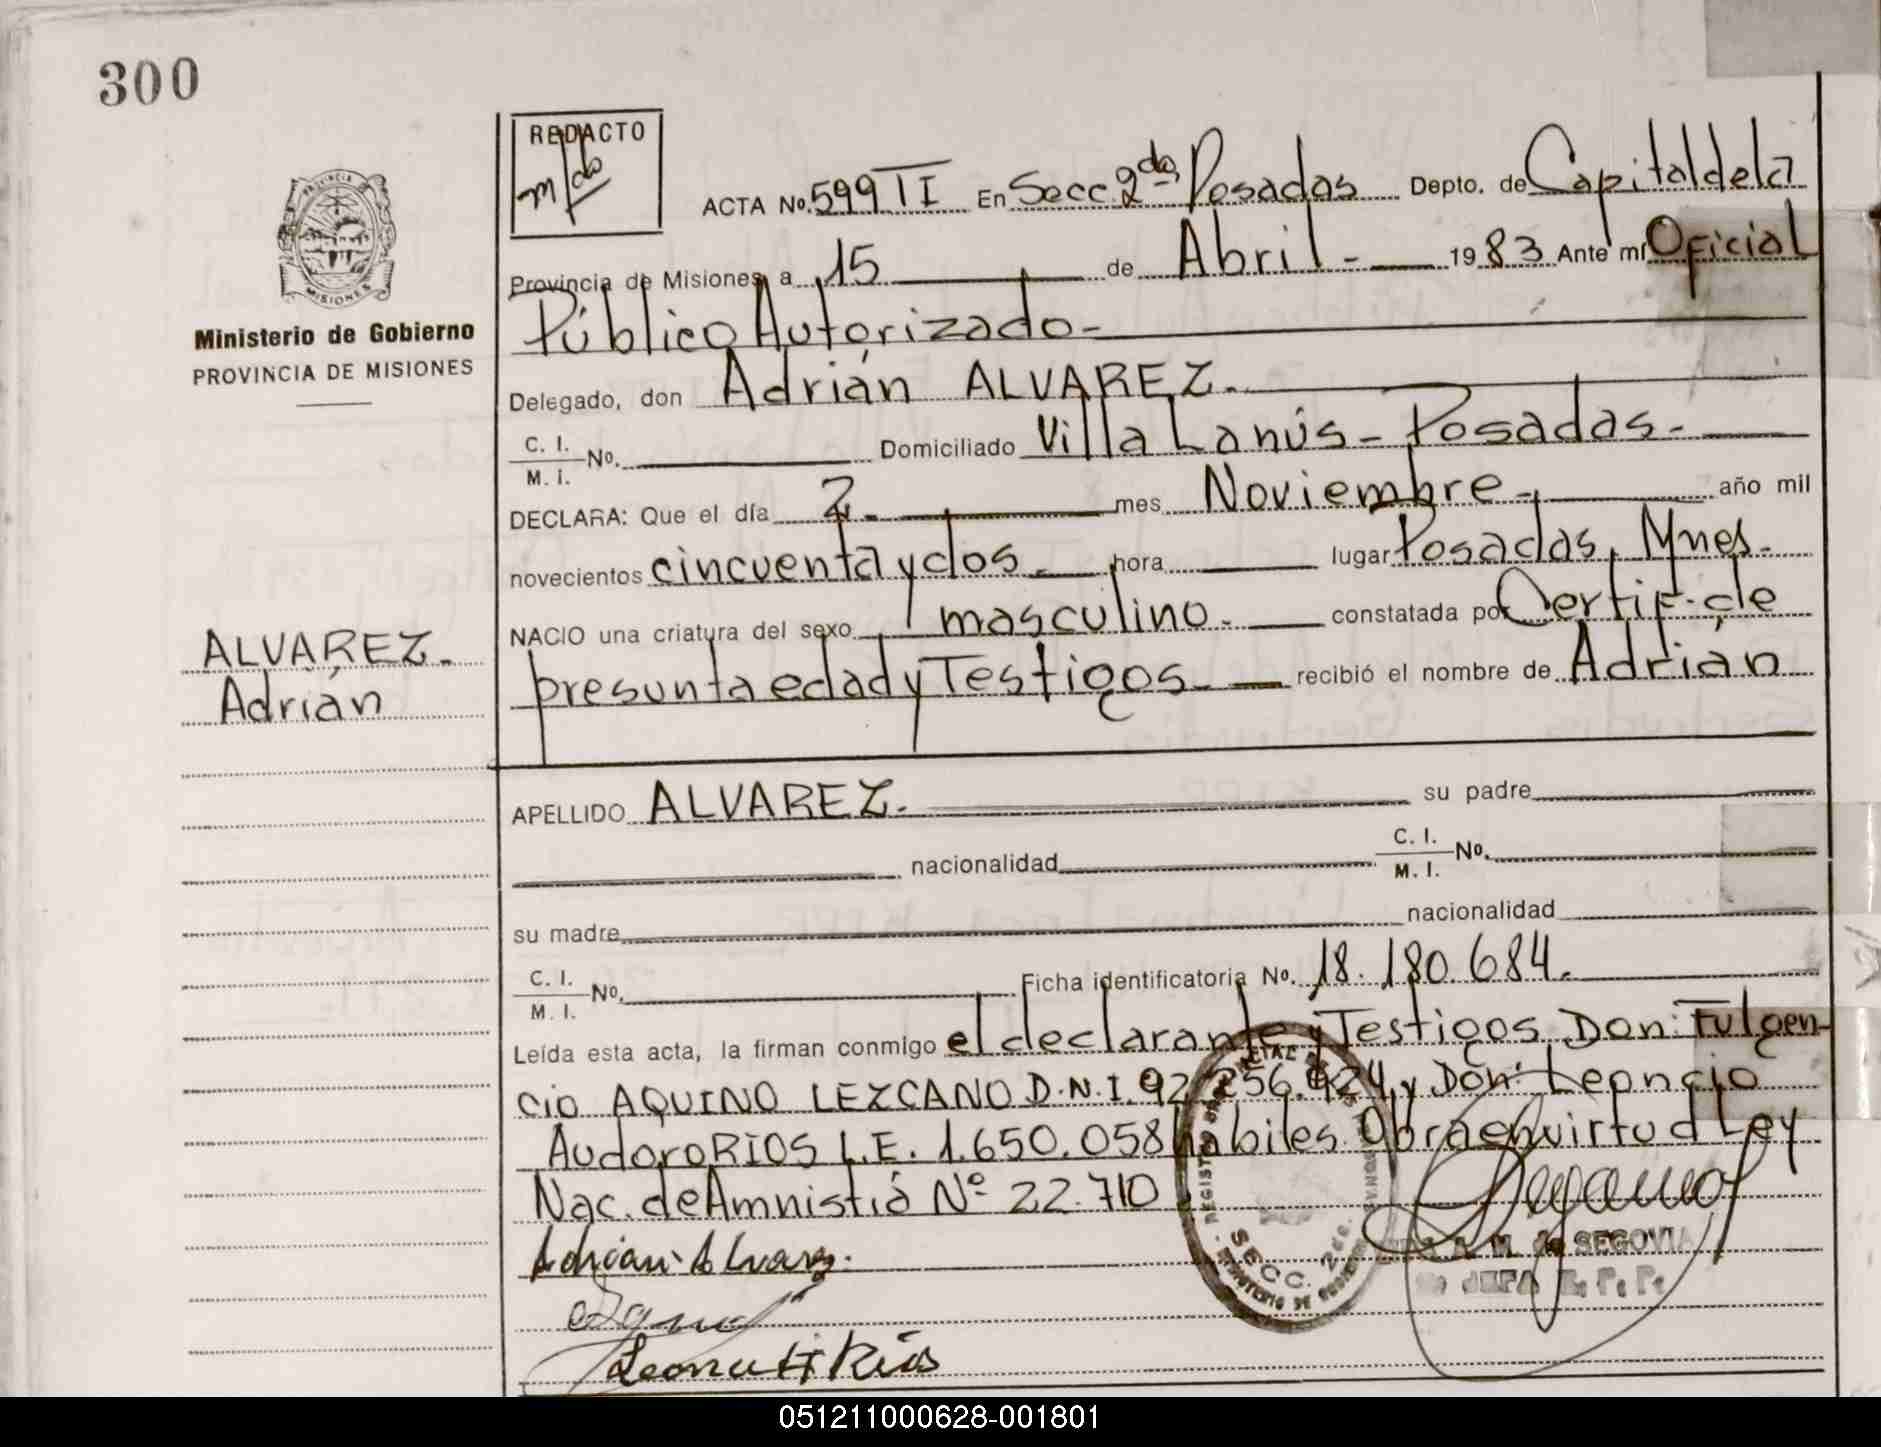 300
REDACTO
ACTA No. 599 TI En Secc. 2da Posadas Depto. de Capital de la
PROVINCIA
MISIONES
Provincia de Misiones, a 15 de Abril - 1983 Ante mí Oficial
Público Autorizado-
Ministerio de Gobierno
PROVINCIA DE MISIONES
Delegado, don Adrián ALVAREZ.
C. I.
M. I. No. Domiciliado Villa Lanús - Posadas.
DECLARA: Que el día 2. mes Noviembre - año mil
novecientos cincuenta y dos. hora lugar Posadas, Mnes.
NACIO una criatura del sexo masculino. constatada por Certif. de
presunta edad y Testigos. recibió el nombre de Adrián
ALVAREZ.
Adrián
APELLIDO ALVAREZ. su padre
nacionalidad C. I.
M. I. No.
su madre nacionalidad
C. I.
M. I. No. Ficha identificatoria No. 18.180.684.
Leída esta acta, la firman conmigo el declarante y Testigos Don: Fulgen-
cio AQUINO LEZCANO D.N.I. 92.256.924 y Don: Leoncio
Audoro RIOS L.E. 1.650.058 habiles. Obra en virtud Ley
Nac. de Amnistiá Nº 22.710
Adrian Alvarez.
SECC. 2da.
M. de SEGOVIA
JEFA
Rios
051211000628-001801